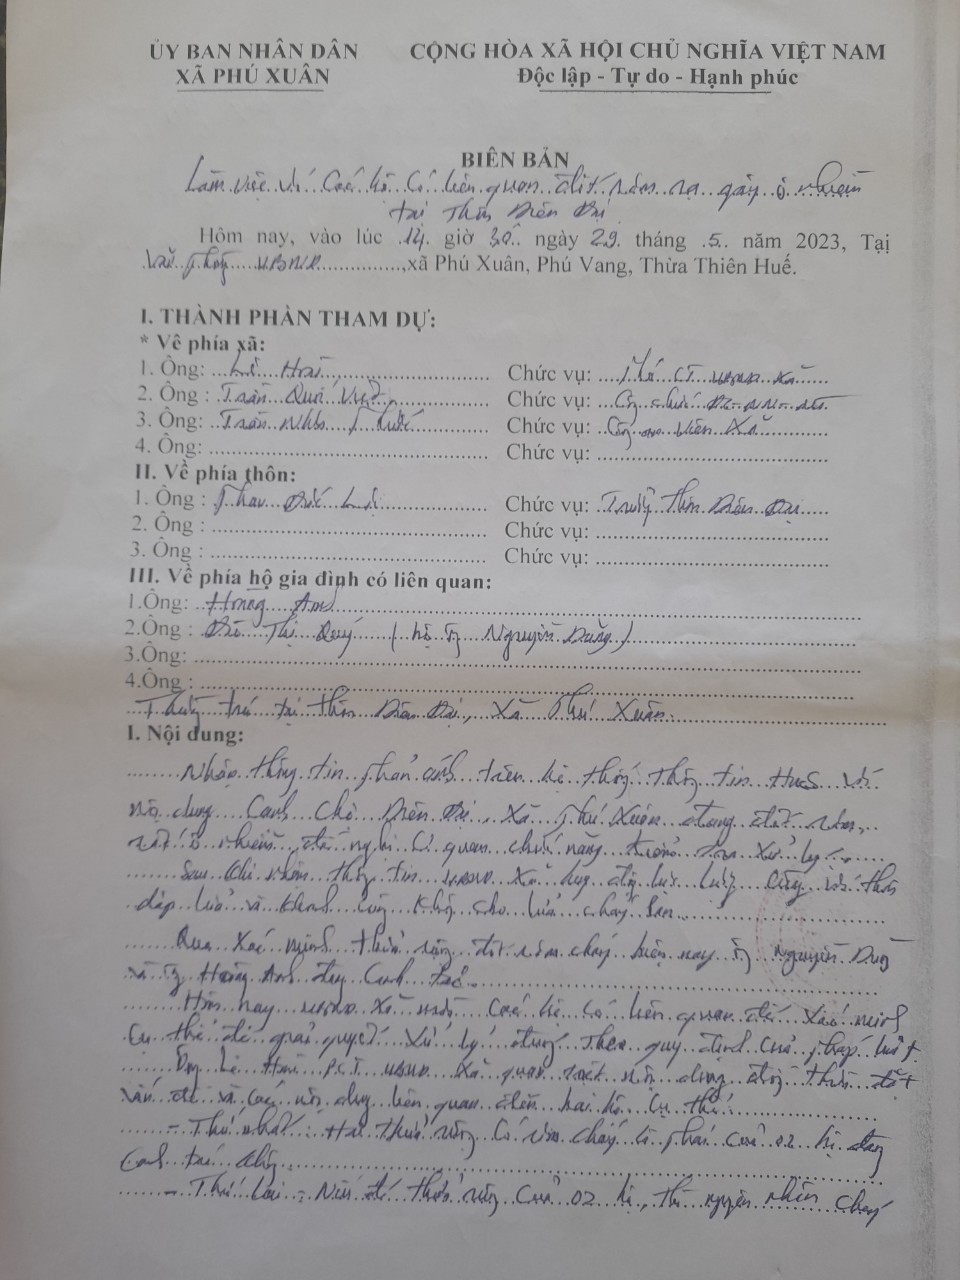 ỦY BAN NHÂN DÂN
XÃ PHÚ XUÂN
CỘNG HÒA XÃ HỘI CHỦ NGHĨA VIỆT NAM
Độc lập - Tự do - Hạnh phúc
BIÊN BẢN
Làm việc với các hộ có liên quan đốt rơm rạ gây ô nhiễm
tại Thôn Diên Đại
Hôm nay, vào lúc 14 giờ 30 ngày 29 tháng 5 năm 2023, Tại
Văn phòng UBND, xã Phú Xuân, Phú Vang, Thừa Thiên Huế.
I. THÀNH PHẦN THAM DỰ:
* Về phía xã:
1. Ông: Lê Hoài Chức vụ: Phó CT UBND xã
2. Ông : Trần Quý Chức vụ: Công chức
3. Ông: Trần Chức vụ: Công an viên Xã
4. Ông: Chức vụ:
II. Về phía thôn:
1. Ông : Phan Đức Chức vụ: Trưởng thôn Diên Đại
2. Ông : Chức vụ:
3. Ông : Chức vụ:
III. Về phía hộ gia đình có liên quan:
1.Ông: Hoàng Anh
2.Ông : Thị Quý ( hộ ông Nguyễn Dũng )
3.Ông:
4.Ông :
Thường trú tại thôn Diên Đại, Xã Phú Xuân
I. Nội dung:
Nhận thông tin phản ánh trên hệ thống thông tin HueS với
nội dung Cạnh chợ Diên Đại, Xã Phú Xuân đang đốt rơm,
rất ô nhiễm, đề nghị cơ quan chức năng kiểm tra xử lý
Sau khi nhận thông tin UBND xã huy động lực lượng cùng với thôn
dập lửa và không cho lửa cháy lan
Qua xác minh thửa ruộng đốt rơm cháy hiện nay ông Nguyễn Dũng
và ông Hoàng Anh đang canh tác
Hôm nay UBND xã mời các hộ có liên quan để xác minh
cụ thể để giải quyết xử lý đúng theo quy định của pháp luật
Ông Lê Hoài P.CT UBND xã quán triệt nội dung đồng thời đặt
vấn đề và các nội dung liên quan đến hai hộ cụ thể:
- Thứ nhất: Hai thửa ruộng có rơm cháy có phải của 02 hộ đang
canh tác không
- Thứ hai: Nếu đó thửa ruộng của 02 hộ, thì nguyên nhân cháy